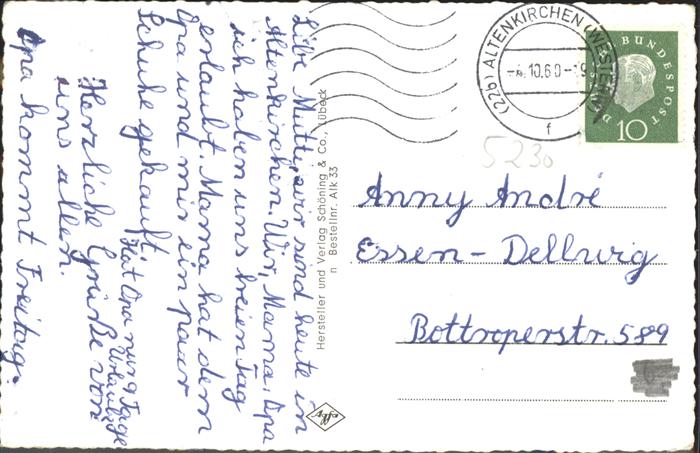 Liebe Mutti, wir sind heute in
Altenkirchen. Wir, Mama, Opa
ich haben uns freien Tag
erlaubt. Mama hat dem
Opa und mir ein paar
Schuhe gekauft.
Hat Opa nur 9 Tage
Urlaub?
Herzliche Grüße von
uns allen.
Opa kommt Freitag.
Hersteller und Verlag Schöning & Co., Lübeck
n Bestellnr. Alk 33
(22b) ALTENKIRCHEN (WESTERW)
.10.60-19
f
DEUTSCHE BUNDESPOST
10
5230
Anny André
Essen-Dellwig
Bottroperstr. 589